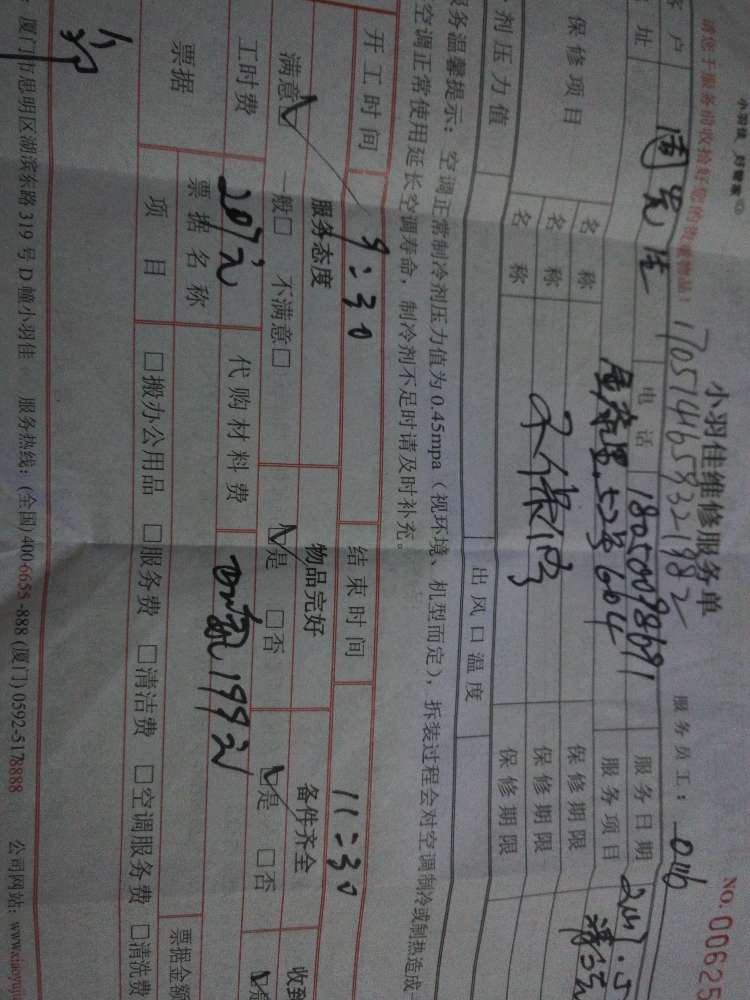 请您于服务前收拾好您的贵重物品!
小羽佳维修服务单
NO. 00625
170574658321982
服务员工:0116
客户
电话 18050098691
服务日期
址
52号604
服务项目
保修项目
名称
不保修
保修期限
名称
保修期限
名称
保修期限
剂压力值
出风口温度
服务温馨提示:空调正常制冷剂压力值为0.45mpa(视环境、机型而定),拆装过程会对空调制冷或制热造成
空调正常使用延长空调寿命,制冷剂不足时请及时补充。
开工时间 9:30 结束时间 11:30
服务态度 物品完好 备件齐全 收到
满意☑ 一般□ 不满意□ ☑是 □否 ☑是 □否
工时费 207元 代购材料费 199元
票据 票据名称 票据金额
项目 □搬办公用品 □服务费 □清洁费 □空调服务费 □清洗费
:厦门市思明区湖滨东路319号D幢小羽佳 服务热线:(全国)400-6655-888 (厦门)0592-5178888 公司网站:www.xiaoyuji